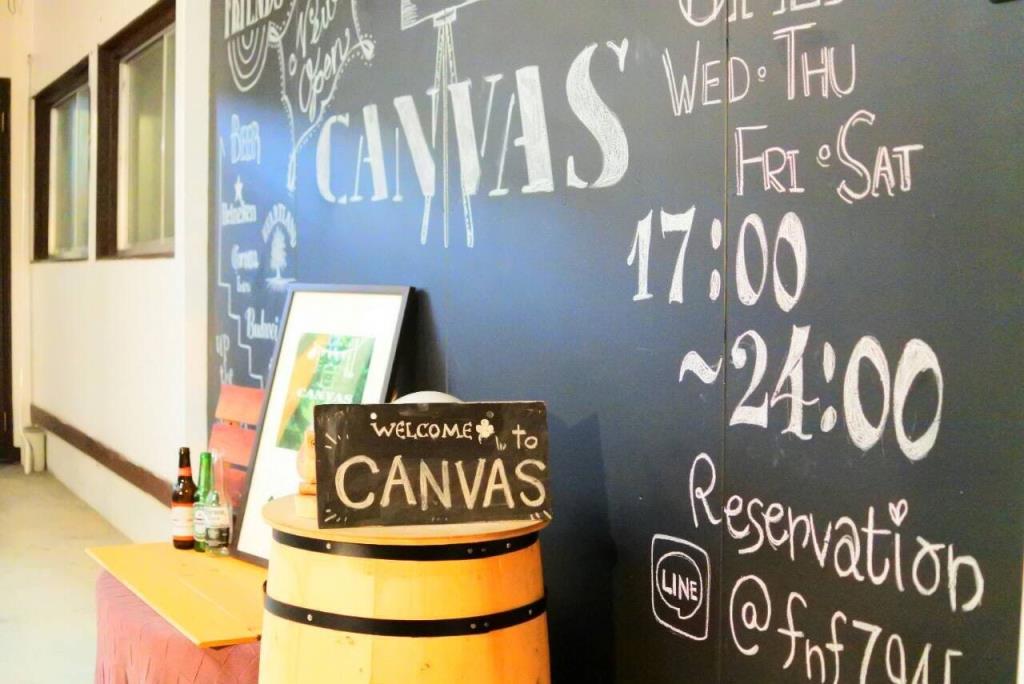 FRIENDS
Open
CANVAS
WED・THU
FRI・SAT
17:00
~24:00
Reservation
LINE
BEER
Heineken
Corona
HEARTLAND
CANVAS
WELCOME to
CANVAS